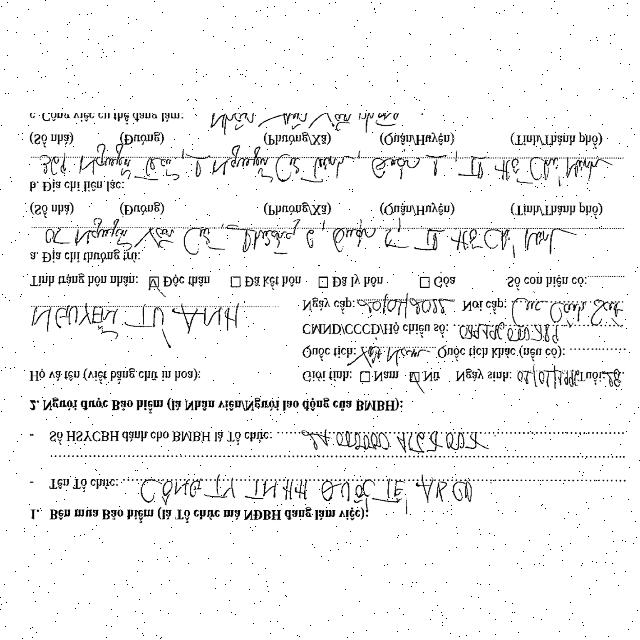 1. Bên mua Bảo hiểm (là Tổ chức mà NĐBH đang làm việc):
- Tên Tổ chức: CÔNG TY TNHH QUỐC TẾ
- Số HSYCBH dành cho BMBH là Tổ chức:
2. Người được Bảo hiểm (là Nhân viên/Người lao động của BMBH):
Họ và tên (viết bằng chữ in hoa): Giới tính: Nam Nữ Ngày sinh: Tuổi:
Quốc tịch: Việt Nam Quốc tịch khác (nếu có):
NGUYỄN TÚ ANH CMND/CCCD/Hộ chiếu số:
Ngày cấp: Nơi cấp:
Tình trạng hôn nhân: Độc thân Đã kết hôn Đã ly hôn Góa Số con hiện có:
a. Địa chỉ thường trú:
Nguyễn Văn Cừ, Phường 2, Quận 5, TP Hồ Chí Minh
(Số nhà) (Đường) (Phường/Xã) (Quận/Huyện) (Tỉnh/Thành phố)
b. Địa chỉ liên lạc:
Nguyễn Nguyễn Cư Trinh, Quận 1, TP Hồ Chí Minh
(Số nhà) (Đường) (Phường/Xã) (Quận/Huyện) (Tỉnh/Thành phố)
c. Công việc cụ thể đang làm: Nhân viên văn phòng